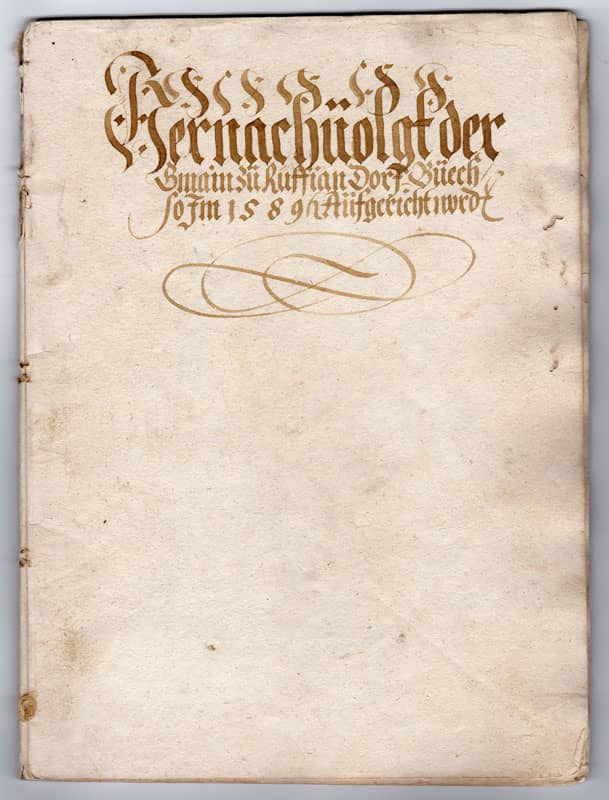 Hernachüolgt der
Gmain zü Ruffian Dorf Büech
so Jm 1589 Aufgericht word